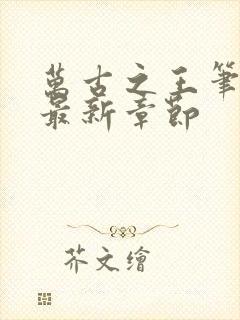 萬古之王筆
最新章節
芥文繪